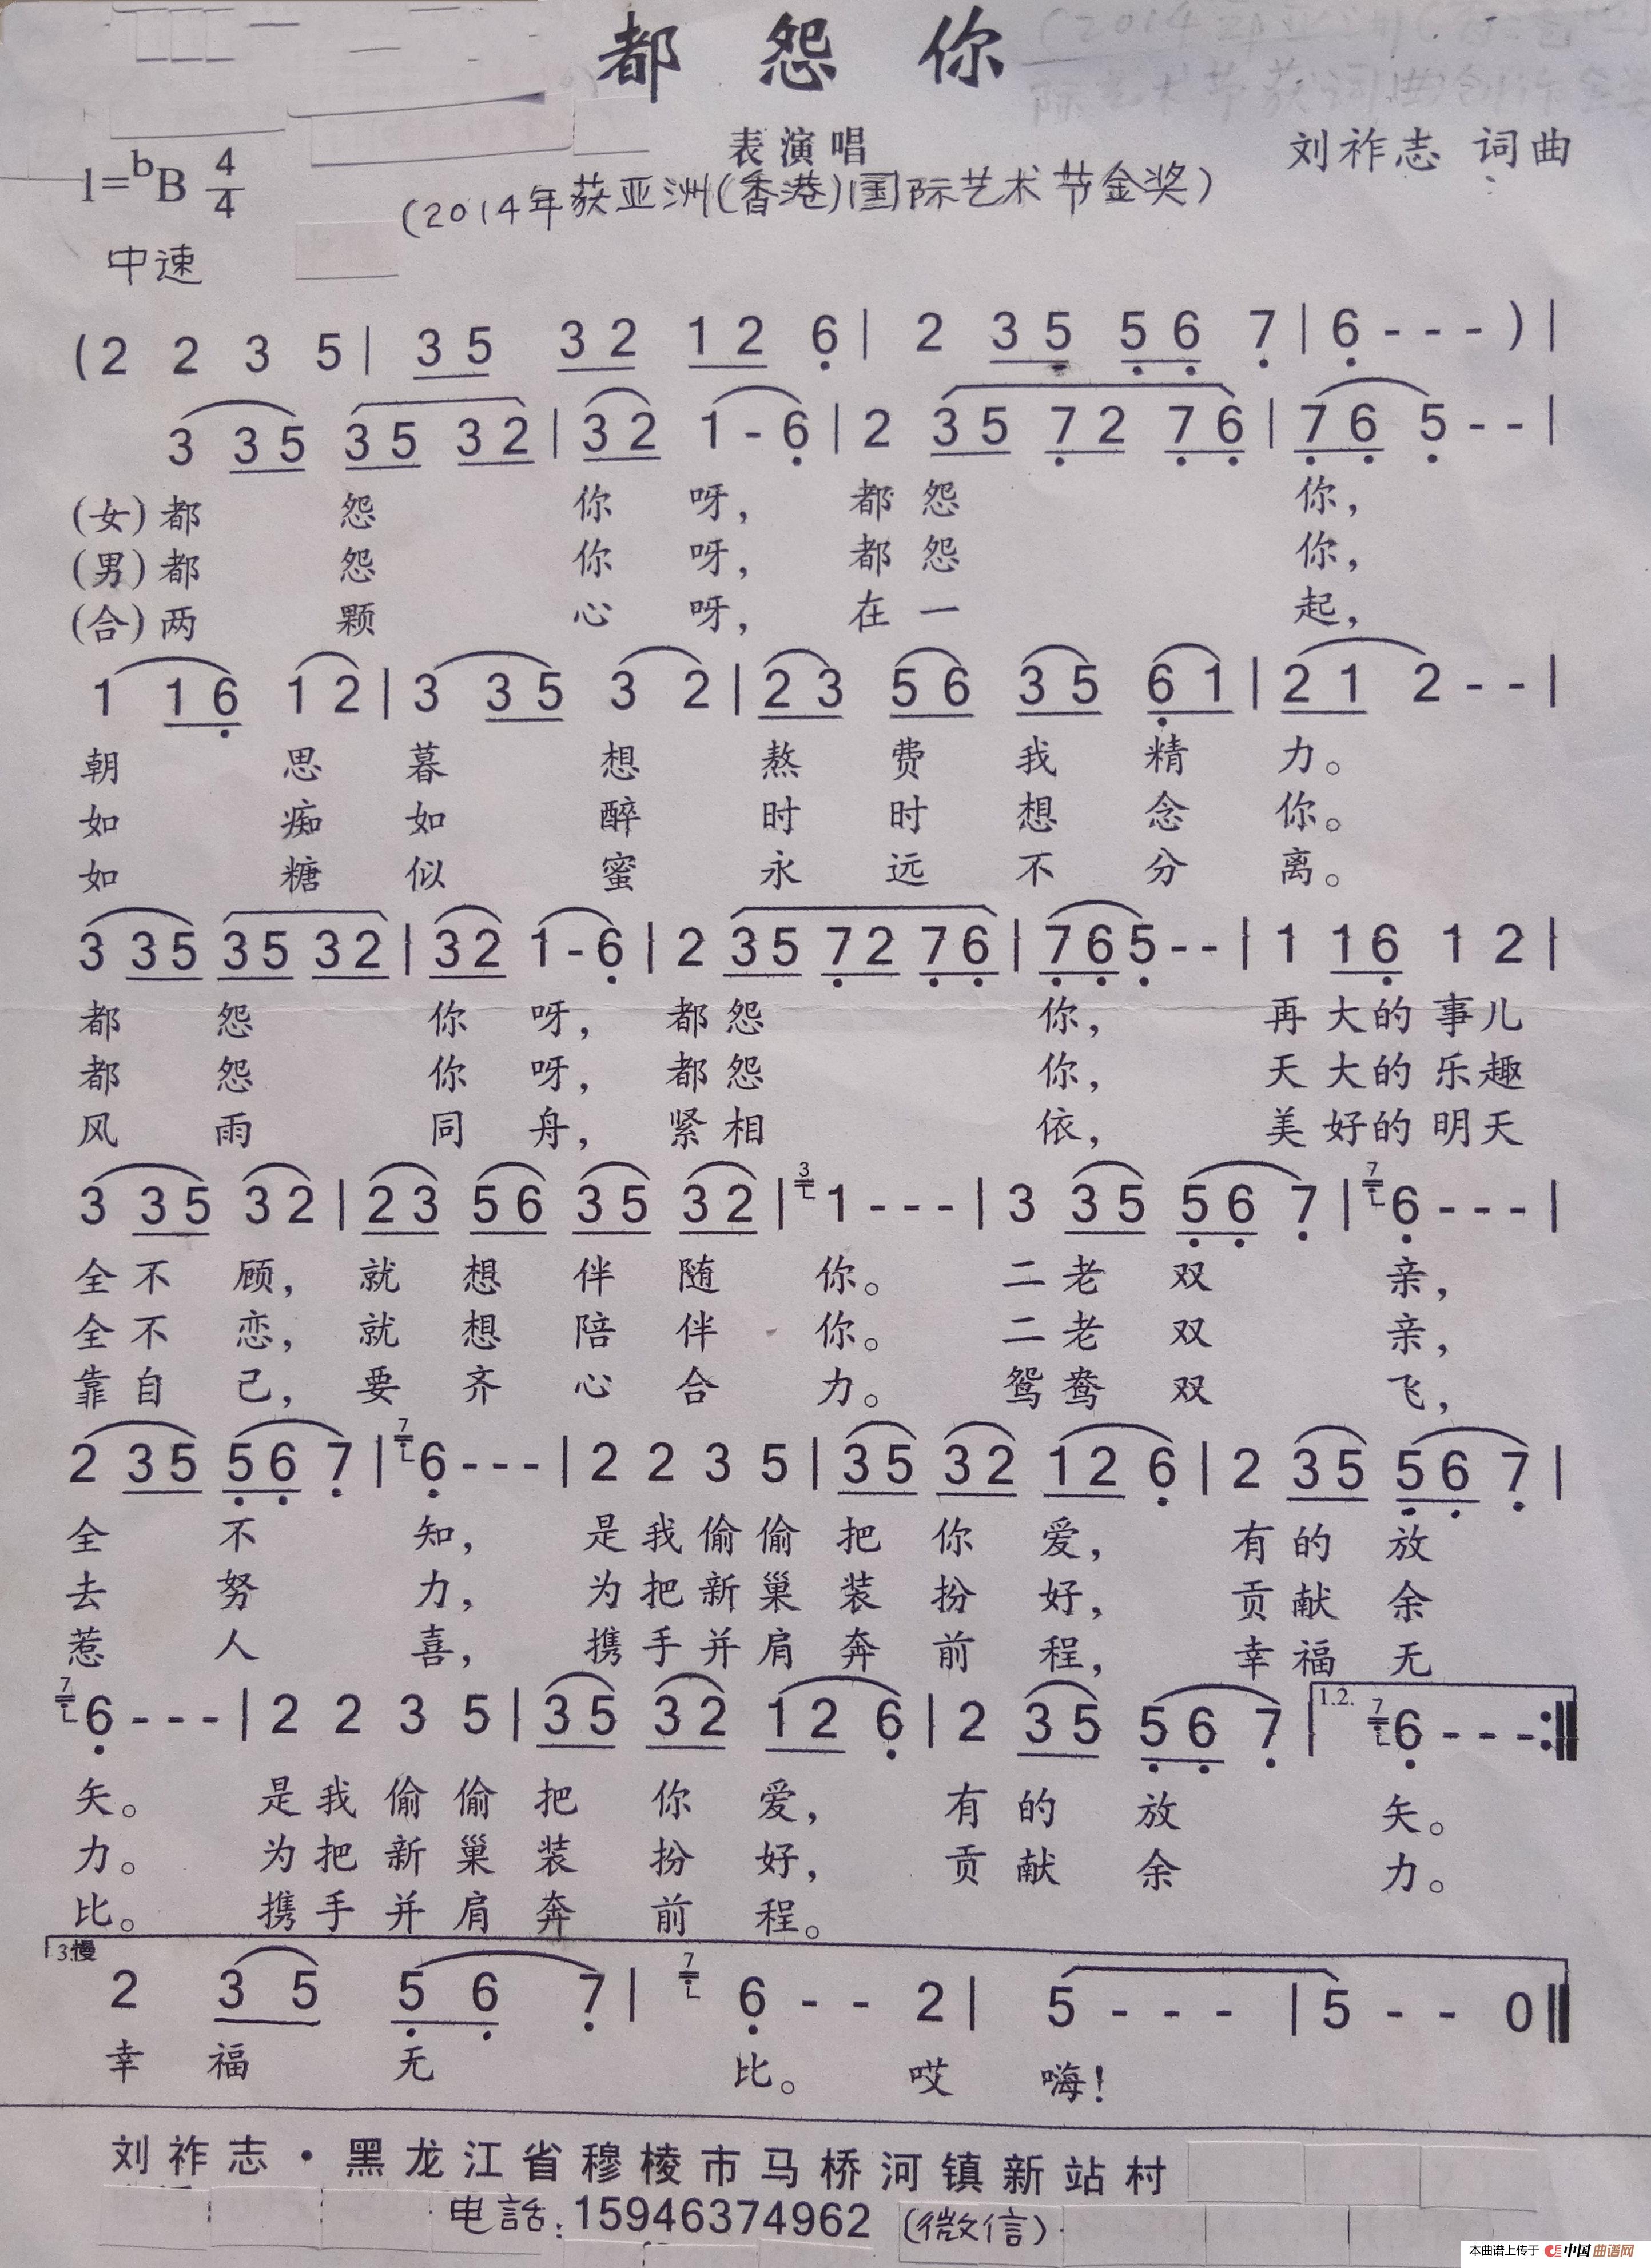 都 怨 你
表演唱
刘祚志 词曲
1=bB 4/4
(2014年获亚洲(香港)国际艺术节金奖)
中速
(2 2 3 5 | 3 5 3 2 1 2 6 | 2 3 5 5 6 7 | 6 - - - ) |
3 3 5 3 5 3 2 | 3 2 1 - 6 | 2 3 5 7 2 7 6 | 7 6 5 - - |
(女)都 怨 你 呀, 都 怨 你,
(男)都 怨 你 呀, 都 怨 你,
(合)两 颗 心 呀, 在 一 起,
1 1 6 1 2 | 3 3 5 3 2 | 2 3 5 6 3 5 6 1 | 2 1 2 - - |
朝 思 暮 想 熬 费 我 精 力。
如 痴 如 醉 时 时 想 念 你。
如 糖 似 蜜 永 远 不 分 离。
3 3 5 3 5 3 2 | 3 2 1 - 6 | 2 3 5 7 2 7 6 | 7 6 5 - - | 1 1 6 1 2 |
都 怨 你 呀, 都 怨 你, 再 大 的 事 儿
都 怨 你 呀, 都 怨 你, 天 大 的 乐 趣
风 雨 同 舟, 紧 相 依, 美 好 的 明 天
3 3 5 3 2 | 2 3 5 6 3 5 3 2 | 3 1 - - - | 3 3 5 5 6 7 | 7 6 - - - |
全 不 顾, 就 想 伴 随 你。 二 老 双 亲,
全 不 恋, 就 想 陪 伴 你。 二 老 双 亲,
靠 自 己, 要 齐 心 合 力。 鸳 鸯 双 飞,
2 3 5 5 6 7 | 7 6 - - - | 2 2 3 5 | 3 5 3 2 1 2 6 | 2 3 5 5 6 7 |
全 不 知, 是 我 偷 偷 把 你 爱, 有 的 放
去 努 力, 为 把 新 巢 装 扮 好, 贡 献 余
惹 人 喜, 携 手 并 肩 奔 前 程, 幸 福 无
7 6 - - - | 2 2 3 5 | 3 5 3 2 1 2 6 | 2 3 5 5 6 7 | 1.2. 7 6 - - - :‖
矢。 是 我 偷 偷 把 你 爱, 有 的 放 矢。
力。 为 把 新 巢 装 扮 好, 贡 献 余 力。
比。 携 手 并 肩 奔 前 程。
3.慢
2 3 5 5 6 7 | 7 6 - - 2 | 5 - - - | 5 - - 0 ‖
幸 福 无 比。 哎 嗨!
刘祚志·黑龙江省穆棱市马桥河镇新站村
电話:15946374962 (微信)
本曲谱上传于 中国曲谱网